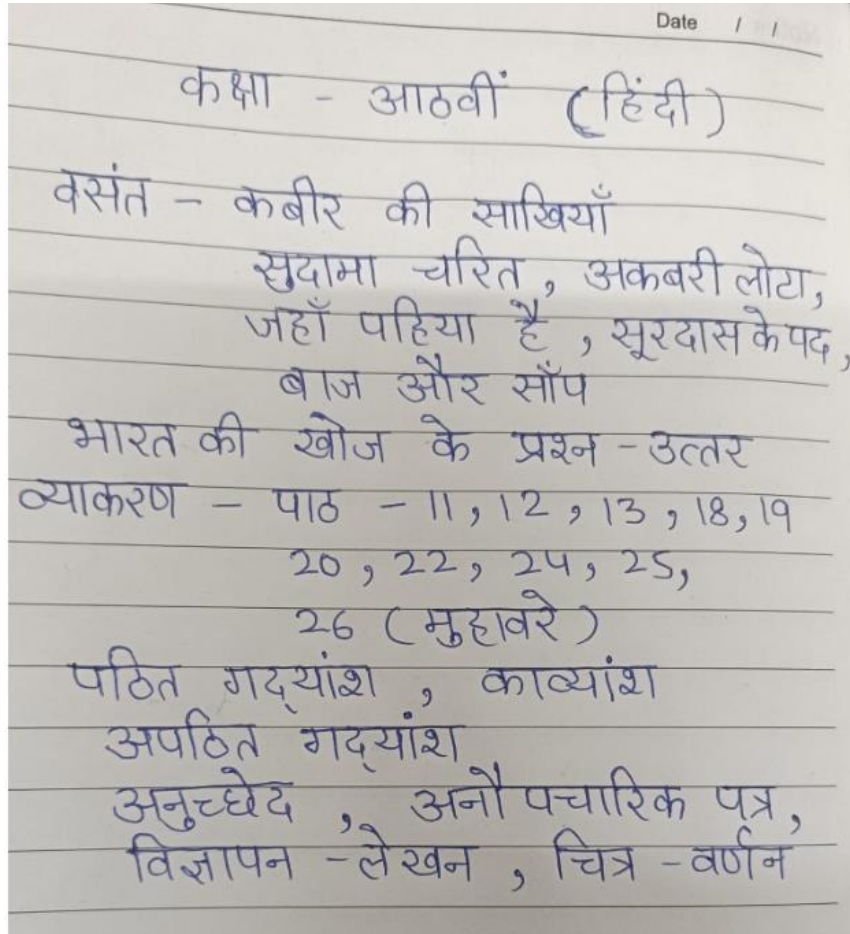 Date / /
कक्षा - आठवीं (हिंदी)
वसंत - कबीर की साखियाँ
सुदामा चरित, अकबरी लोटा,
जहाँ पहिया है, सूरदास के पद,
बाज और साँप
भारत की खोज के प्रश्न - उत्तर
व्याकरण - पाठ - 11, 12, 13, 18, 19
20, 22, 24, 25,
26 (मुहावरे)
पठित गद्यांश, काव्यांश
अपठित गद्यांश
अनुच्छेद, अनौपचारिक पत्र,
विज्ञापन - लेखन, चित्र - वर्णन